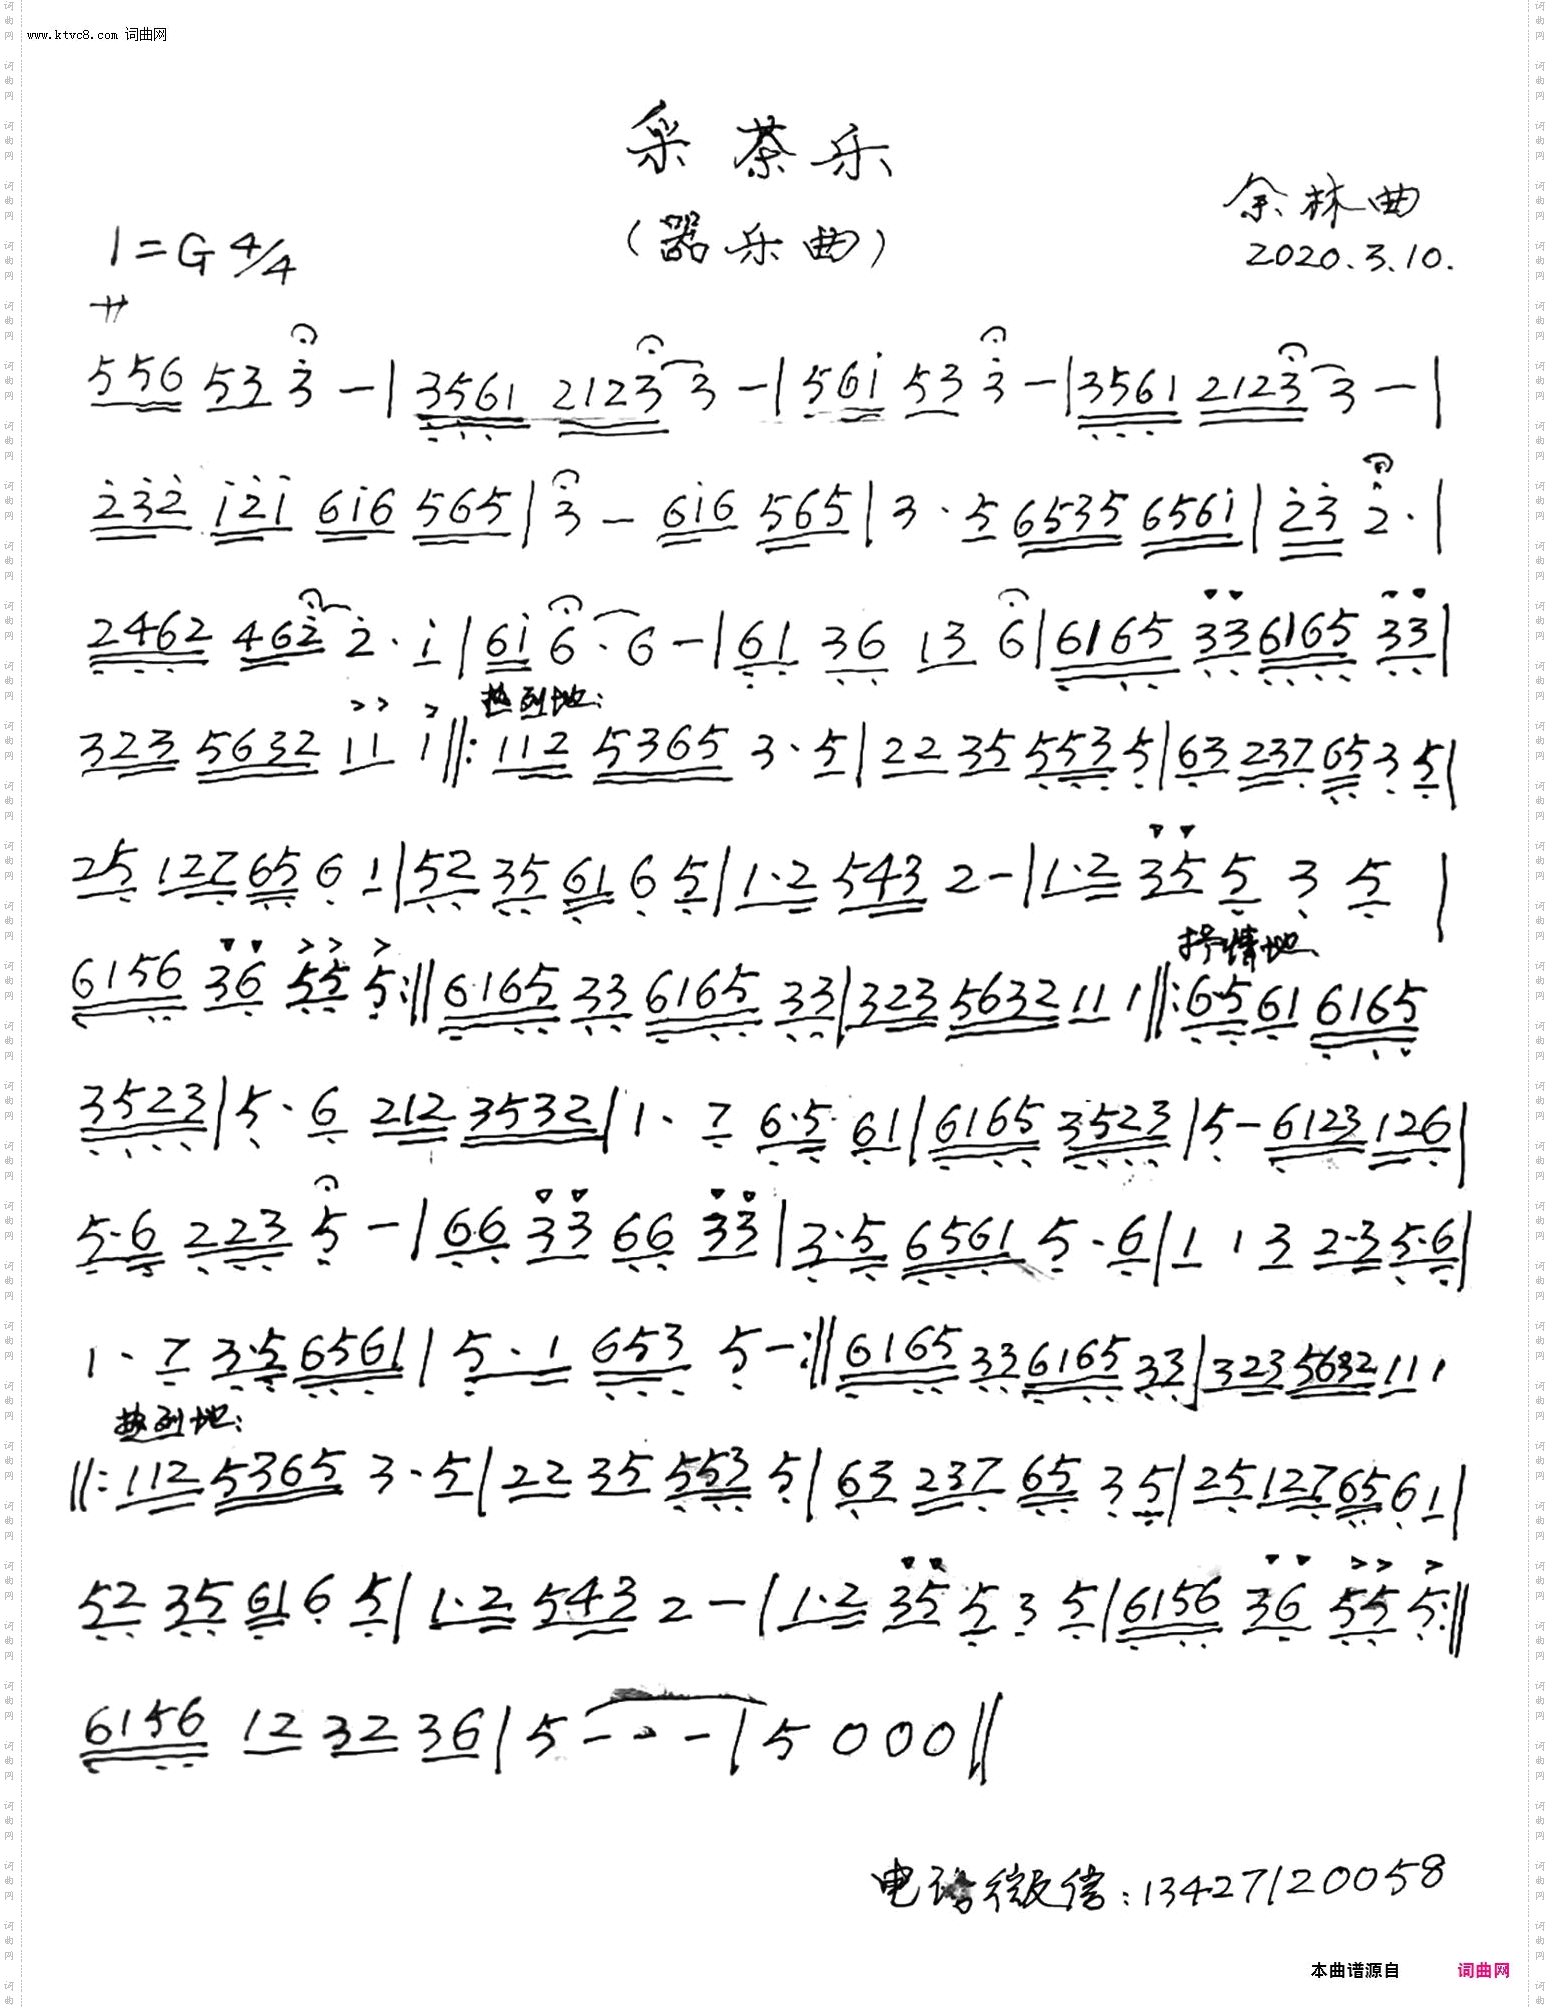 www.ktvc8.com 词曲网
采茶乐
(器乐曲)
余林曲
2020.3.10.
1=G 4/4
サ
556 53 3 - | 3561 2123 3 - | 561 53 3 - | 3561 2123 3 - |
232 121 616 565 | 3 - 616 565 | 3 · 5 6535 6561 | 23 2 · |
2462 462 2 · 1 | 61 6 · 6 - | 61 36 13 6 | 6165 33 6165 33 |
热烈地:
323 5632 11 1 ‖: 112 5365 3 · 5 | 22 35 553 5 | 63 237 65 3 5 |
25 127 65 6 1 | 52 35 61 6 5 | 1·2 543 2 - | 1·2 35 5 3 5 |
抒情地
6156 36 55 5 :‖ 6165 33 6165 33 | 323 5632 11 1 ‖: 6·5 61 6165
3523 | 5 · 6 212 3532 | 1 · 7 6·5 61 | 6165 3523 | 5 - 6123 126 |
5·6 223 5 - | 66 33 66 33 | 3·5 6561 5 · 6 | 1 1 3 2·3 5·6 |
1 · 7 3·5 6561 | 5 · 1 653 5 - :‖ 6165 33 6165 33 | 323 5632 11 1
热烈地:
‖: 112 5365 3 · 5 | 22 35 553 5 | 63 237 65 3 5 | 25 127 65 6 1 |
52 35 61 6 5 | 1·2 543 2 - | 1·2 35 5 3 5 | 6156 36 55 5 :‖
6156 12 32 36 | 5 - - - | 5 0 0 0 ‖
电话微信:13427120058
本曲谱源自 词曲网